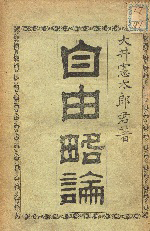 大井憲太郎君著
自由略論